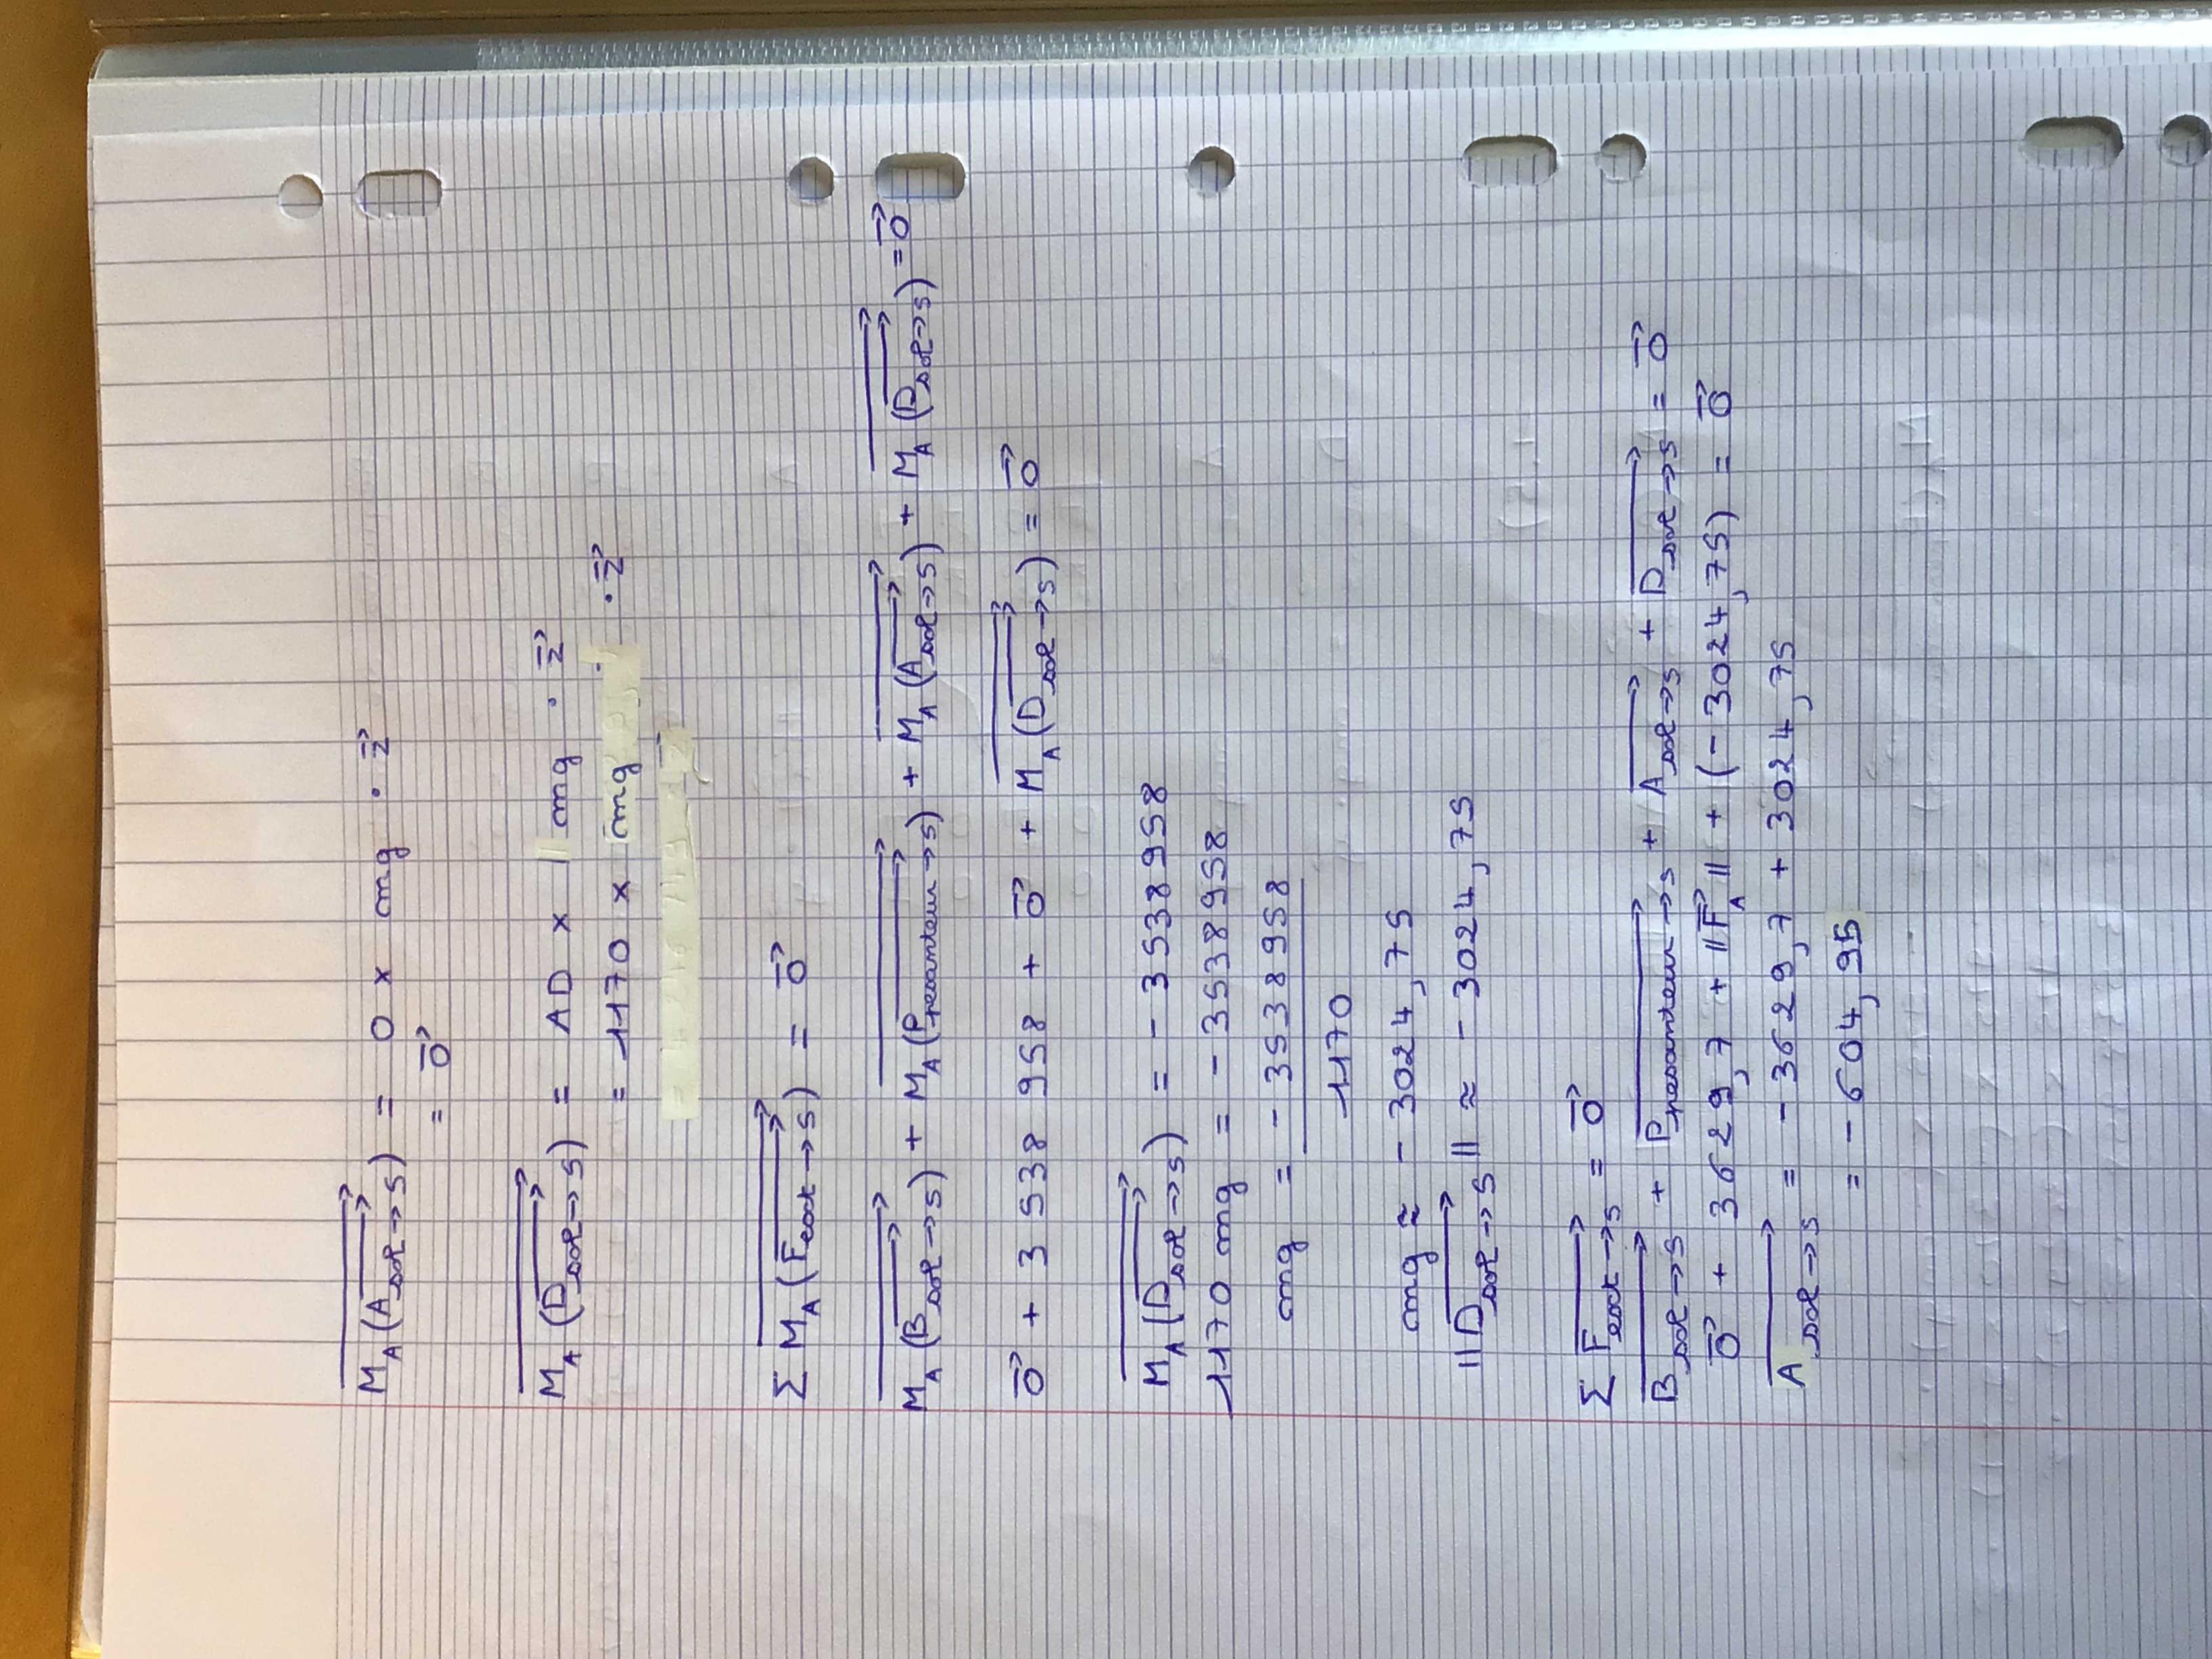 M_A (A_sol→s) = 0 x mg . z
= 0
M_A (D_sol→s) = AD x || mg . z
= 1170 x mg . z
Σ M_A (F_ext→s) = 0
M_A (B_sol→s) + M_A (P_pesanteur→s) + M_A (A_sol→s) + M_A (D_sol→s) = 0
0 + 3 538 958 + 0 + M_A (D_sol→s) = 0
M_A (D_sol→s) = - 3538958
1170 mg = - 3538958
mg = - 3538958
1170
mg ≈ - 3024,75
||D_sol→s|| ≈ - 3024,75
Σ F_ext→s = 0
B_sol→s + P_pesanteur→s + A_sol→s + D_sol→s = 0
0 + 3629,7 + ||F_A|| + (- 3024,75) = 0
A_sol→s = - 3629,7 + 3024,75
= - 604,95